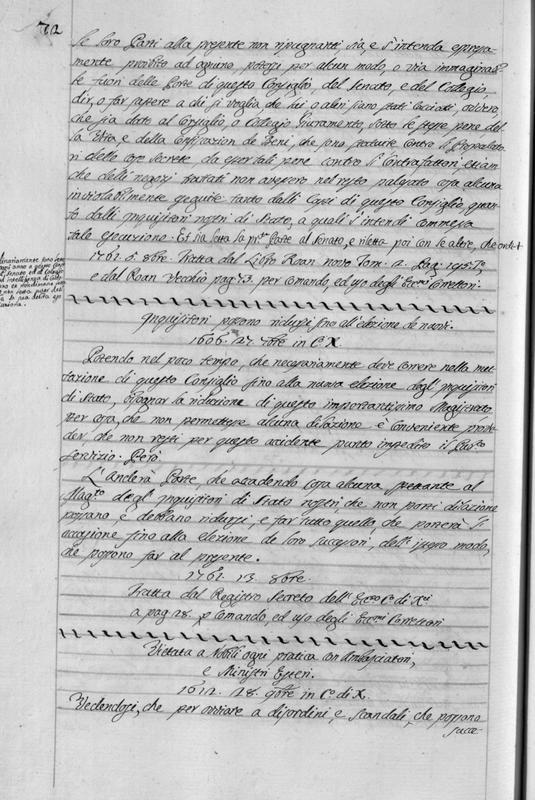 72
le loro Parti alla presente non ripugnanti, sia, e s'intenda espressa-
mente proibito ad ognuno, potersi per alcun modo, o via immaginabi-
le fuori delle Porte di questo Consiglio, del Senato, e del Collegio
dir, o far sapere a chi si voglia che lui o altri siano stati cacciati, ovvero,
che sia dato al Consiglio, o Collegio Giuramento, sotto le stesse pene del-
la Vita, e della Confiscazion de Beni, che sono statuite contro li Propalato-
ri delle cose Secrete da esser tali pene contro li Contrafattori, etiam
che delli negozi trattati non avessero nel resto palesato cosa alcuna
inviolabilmente eseguite tanto dalli Capi di questo Consiglio, quan-
to dalli Inquisitori nostri di Stato, a quali s'intendi commessa
tale esecuzione. Et sia letta la pr.te Parte al Senato, e riletta poi con le altre, che
1762. 5. 8bre. Tratta dal Libro Roan novo Tom. 2. Pag. 195 T.o,
e dal Roan Vecchio pag. 73. per Comando, ed uso degli Ecc.mi Correttori.
Inquisitori possono ridursi fino all'elezione de nuovi.
1606. 27. 7bre in C.X.
Potendo nel poco tempo, che necessariamente deve correre nella mu-
tazione di questo Consiglio fino alla nuova elezione degl'Inquisitori
di Stato, bisognar la riduzione di questo importantissimo Magistrato
per cosa, che non permettesse alcuna dilazione è conveniente provve-
der, che non resti per questo accidente punto impedito il Pub.co
servizio. Però
L'Anderà Parte, che accadendo cosa alcuna spettante al
Mag.to degl'Inquisitori di Stato nostri, che non porti dilazione
possano, e debbano ridursi, e far tutto quello, che porterà l'
occasione fino alla elezione de loro successori, dell'istesso modo,
che possono far al presente.
1762. 13. 8bre.
Tratta dal Registro Secreto dell'Ecc.so C.o di X.ci
a pag. 28. p Comando, ed uso degli Ecc.mi Correttori
Vietata a Nobili ogni pratica con Ambasciatori,
e Ministri Esteri.
1612. 28. 9bre in C.o di X.
Vedendosi, che per ovviare a disordini, e scandali, che possono
succe-